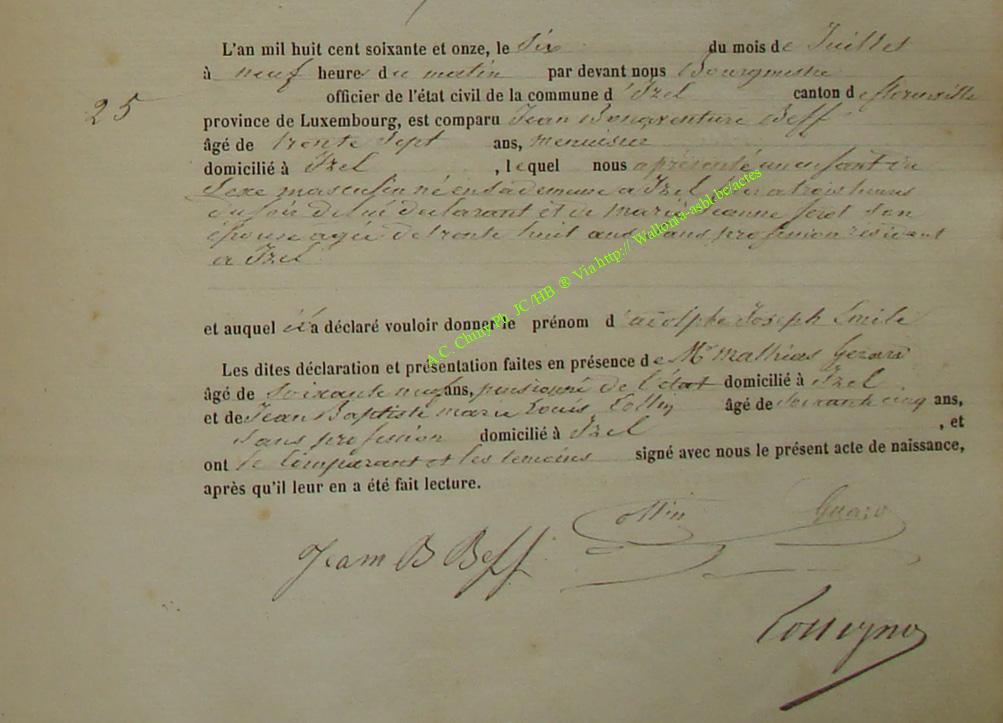 L'an mil huit cent soixante et onze, le Six du mois de Juillet
à neuf heures du matin par devant nous Bourgmestre
25 officier de l'état civil de la commune d'Izel canton de florenville
province de Luxembourg, est comparu Jean Bonaventure Beff
âgé de trente sept ans, menuisier
domicilié à Izel , lequel nous a présenté un enfant du
Sexe masculin né en sa demeure a Izel a trois heures
du soir de lui declarant et de marie Jeanne son
epouse agée de trente huit ans sans profession residant
a Izel
et auquel il a déclaré vouloir donner le prénom d'adolphe Joseph Emile
Les dites déclaration et présentation faites en présence de Mr mathias Gerard
âgé de soixante neuf ans, pensionné de l'état domicilié à Izel
et de Jean Baptiste marie Louis Collin âgé de soixante cinq ans,
sans profession domicilié à Izel , et
ont le comparant et les temoins signé avec nous le présent acte de naissance,
après qu'il leur en a été fait lecture.
Collin Gerard
Jean B Beff
A.C. Chiny Ph. JC/HB ® Via http:// Wallonia-asbl.be/actes